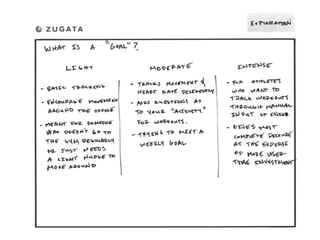 ZUGATA
EXPLORATION
WHAT IS A "GOAL"?
LIGHT
- BASIC TRACKING
- ENCOURAGE MOVEMENT
AROUND THE
- MEANT FOR SOMEONE
WHO DOESN'T GO TO
THE GYM REGULARLY
OR JUST NEEDS
A LIGHT NUDGE TO
MOVE AROUND
MODERATE
- TRACKS MOVEMENT &
HEART RATE
- ASKS QUESTIONS AS
TO YOUR "ACTIVITY"
FOR WORKOUTS.
- TRYING TO MEET A
WEEKLY GOAL
INTENSE
- FOR ATHLETES
WHO WANT TO
TRACK WORKOUTS
THROUGH MANUAL
INPUT OF
- GIVES MOST
COMPLETE PICTURE
AT THE EXPENSE
OF MORE USER
TIME INVESTMENT